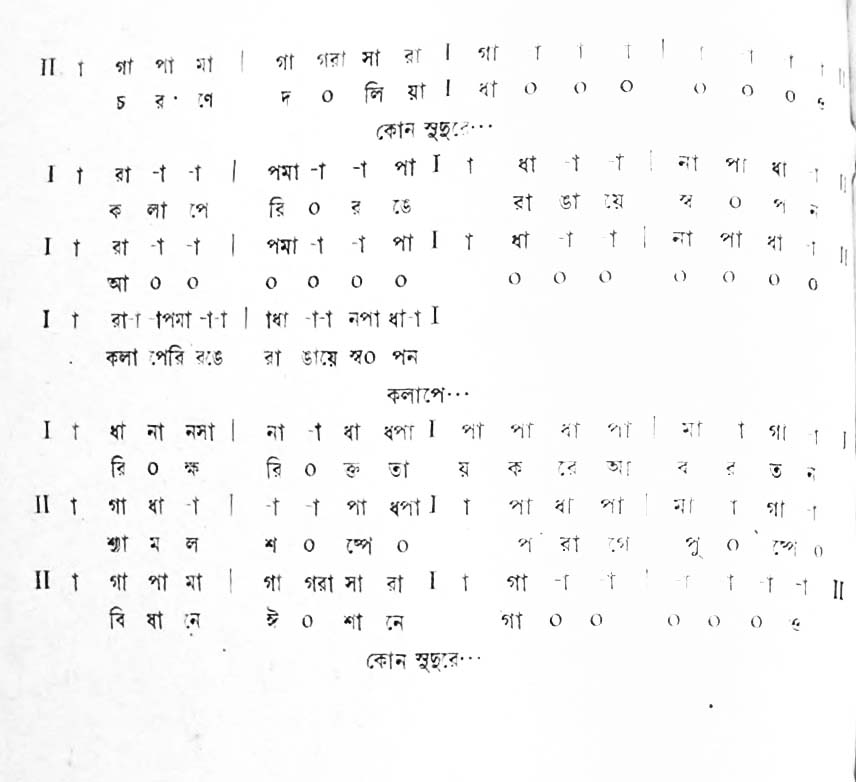 II া গা পা মা | গা গরা সা রা I গা া া া | া -া া া II
চ র ণে দ ০ লি য়া I ধা ০ ০ ০ ০ ০ ০ ও
কোন সুদূরে···
I া রা -া -া | পমা -া -া পা I া ধা -া -া | না পা ধা -া II
ক লা পে রি ০ র ঙে রা ঙা য়ে স্ব ০ প ন
I া রা -া -া | পমা -া -া পা I া ধা -া া | না পা ধা -া II
আ ০ ০ ০ ০ ০ ০ ০ ০ ০ ০ ০ ০ ০
I া রা-া -াপমা -া-া | াধা -া-া নপা ধা-া I
কলা পেরি রঙে রা ঙায়ে স্ব০ পন
কলাপে···
I া ধা না নসা | না -া ধা ধপা I পা পা ধা পা | মা া গা -া I
রি ০ ক্ষ রি ০ ক্ত তা য় ক রে আ ব র ত ন
II া গা ধা -া | -া -া পা ধপা I া পা ধা পা | মা া গা -া
শ্যা ম ল শ ০ ষ্পে ০ প রা গে পু ০ ষ্পে ০
II া গা পা মা | গা গরা সা রা I া গা -া -া | -া া -া -া II
বি ষা নে ঈ ০ শা নে গা ০ ০ ০ ০ ০ ও
কোন সুদূরে···